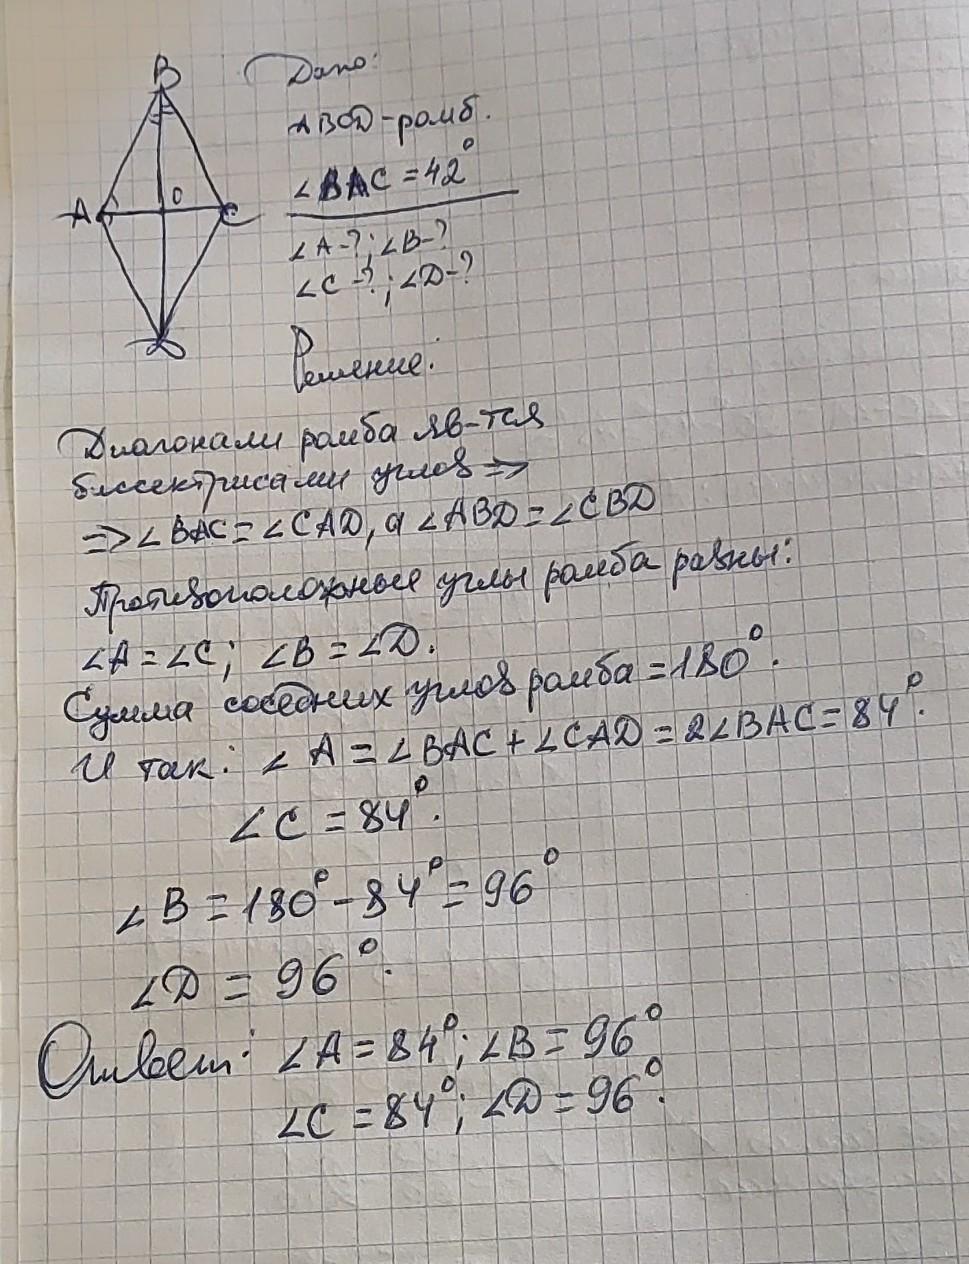 B
A
O
C
D
Дано:
ABCD-ромб.
∠BAC = 42°
∠A-?; ∠B-?
∠C-?; ∠D-?
Решение:
Диагонали ромба яв-тся
биссектрисами углов =>
=> ∠BAC = ∠CAD, а ∠ABD = ∠CBD
Противоположные углы ромба равны:
∠A = ∠C; ∠B = ∠D.
Сумма соседних углов ромба = 180°.
И так: ∠A = ∠BAC + ∠CAD = 2∠BAC = 84°.
∠C = 84°.
∠B = 180° - 84° = 96°
∠D = 96°.
Ответ: ∠A = 84°; ∠B = 96°
∠C = 84°; ∠D = 96°.